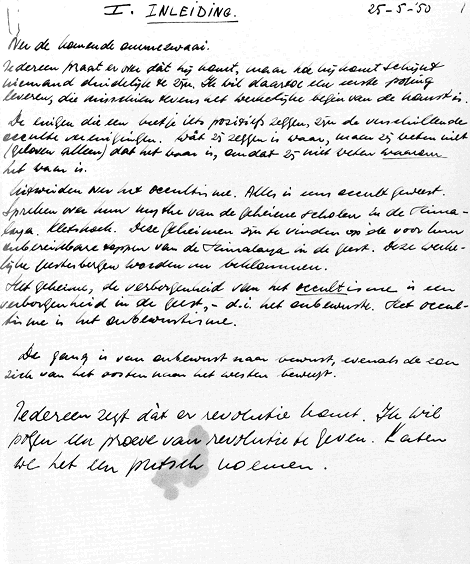 I. INLEIDING. 25-5-'50 1
Over de komende ommezwaai.
Iedereen praat er over dàt hij komt, maar hoe hij komt schijnt
niemand duidelijk te zijn. Ik wil daartoe een eerste poging
leveren, die misschien tevens het werkelijke begin van de komst is.
De enigen die een beetje iets positiefs zeggen, zijn de verschillende
occulte verenigingen. Wàt zij zeggen is waar, maar zij weten niet
(geloven alleen) dat het waar is, omdat zij niet weten waarom
het waar is.
Uitweiden over het occultisme. Alles is eens occult geweest.
Spreken over hun mythe van de geheime scholen in de Hima-
laya. Kletskoek. Deze geheimen zijn te vinden op de voor hun
onbereikbare toppen van de Himalaya in de geest. Deze werke-
lijke geestbergen worden nu beklommen.
Het geheime, de verborgenheid van het occultisme is een
verborgenheid in de geest, - d.i. het onbewuste. Het occul-
tisme is het onbewustisme.
De gang is van onbewust naar bewust, evenals de zon
zich van het oosten naar het westen beweegt.
Iedereen zegt dàt er revolutie komt. Ik wil
pogen een proeve van revolutie te geven. Laten
we het een putsch noemen.